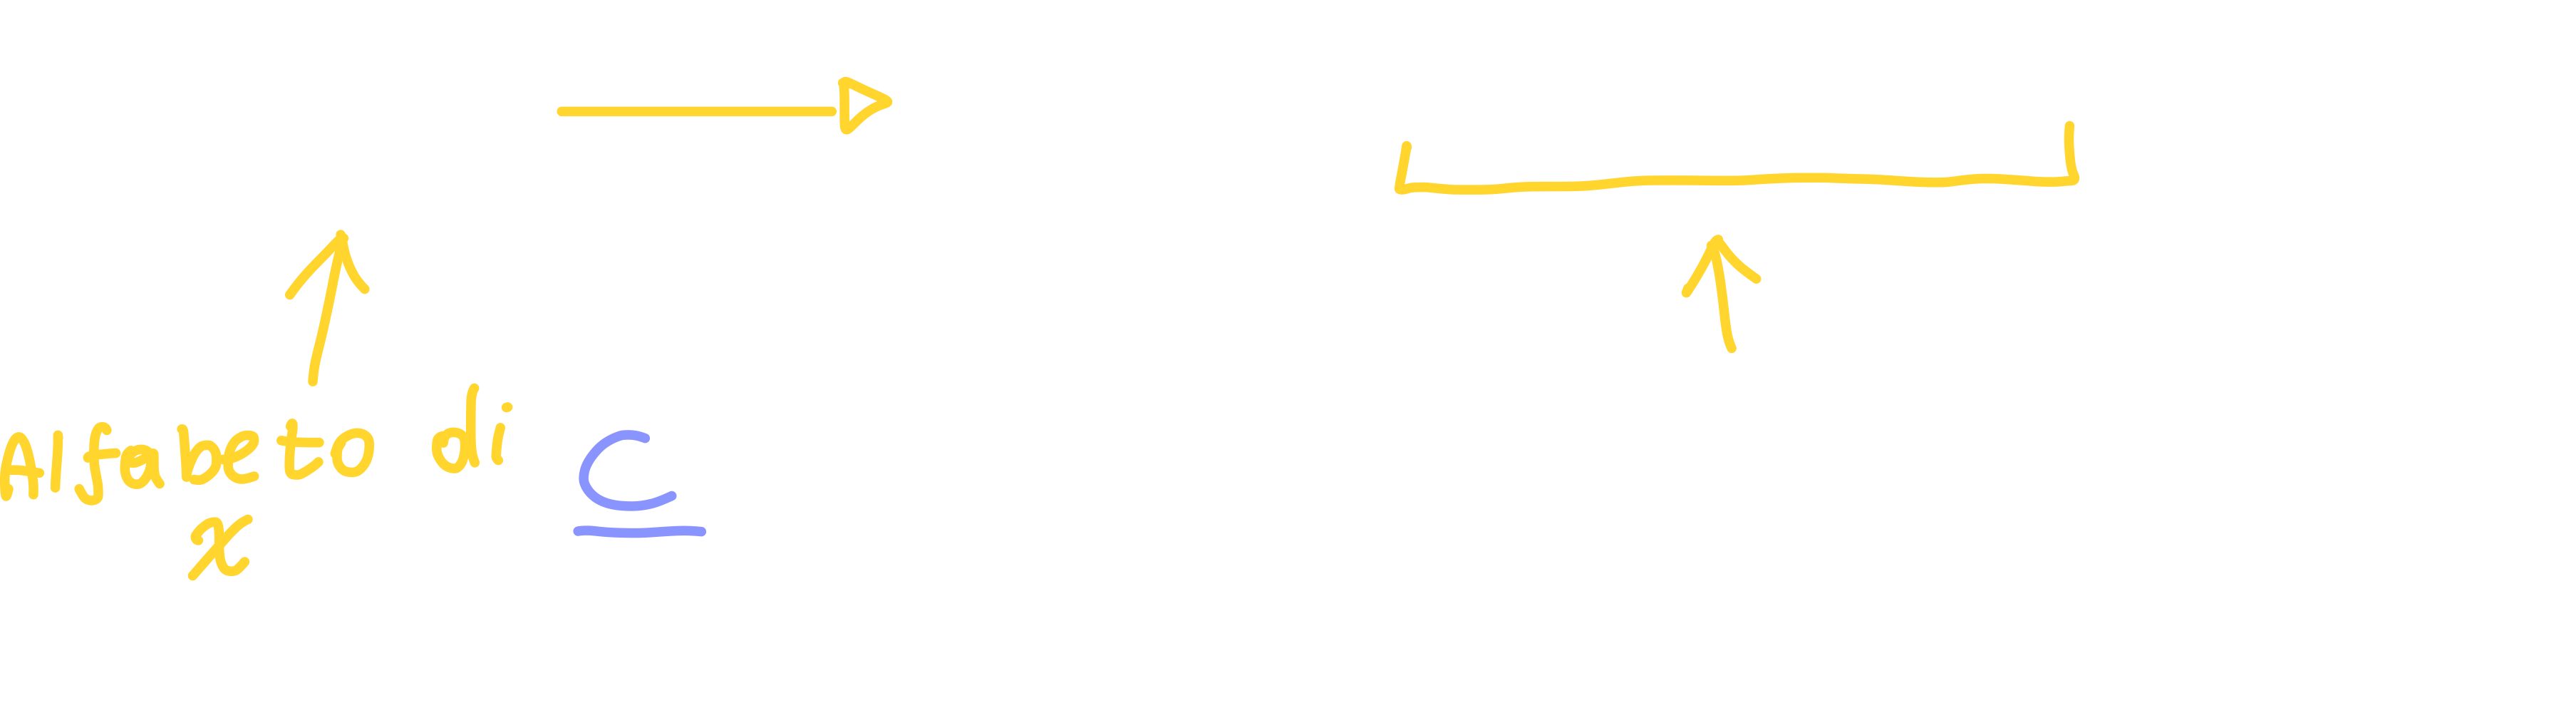 Alfabeto di C
x